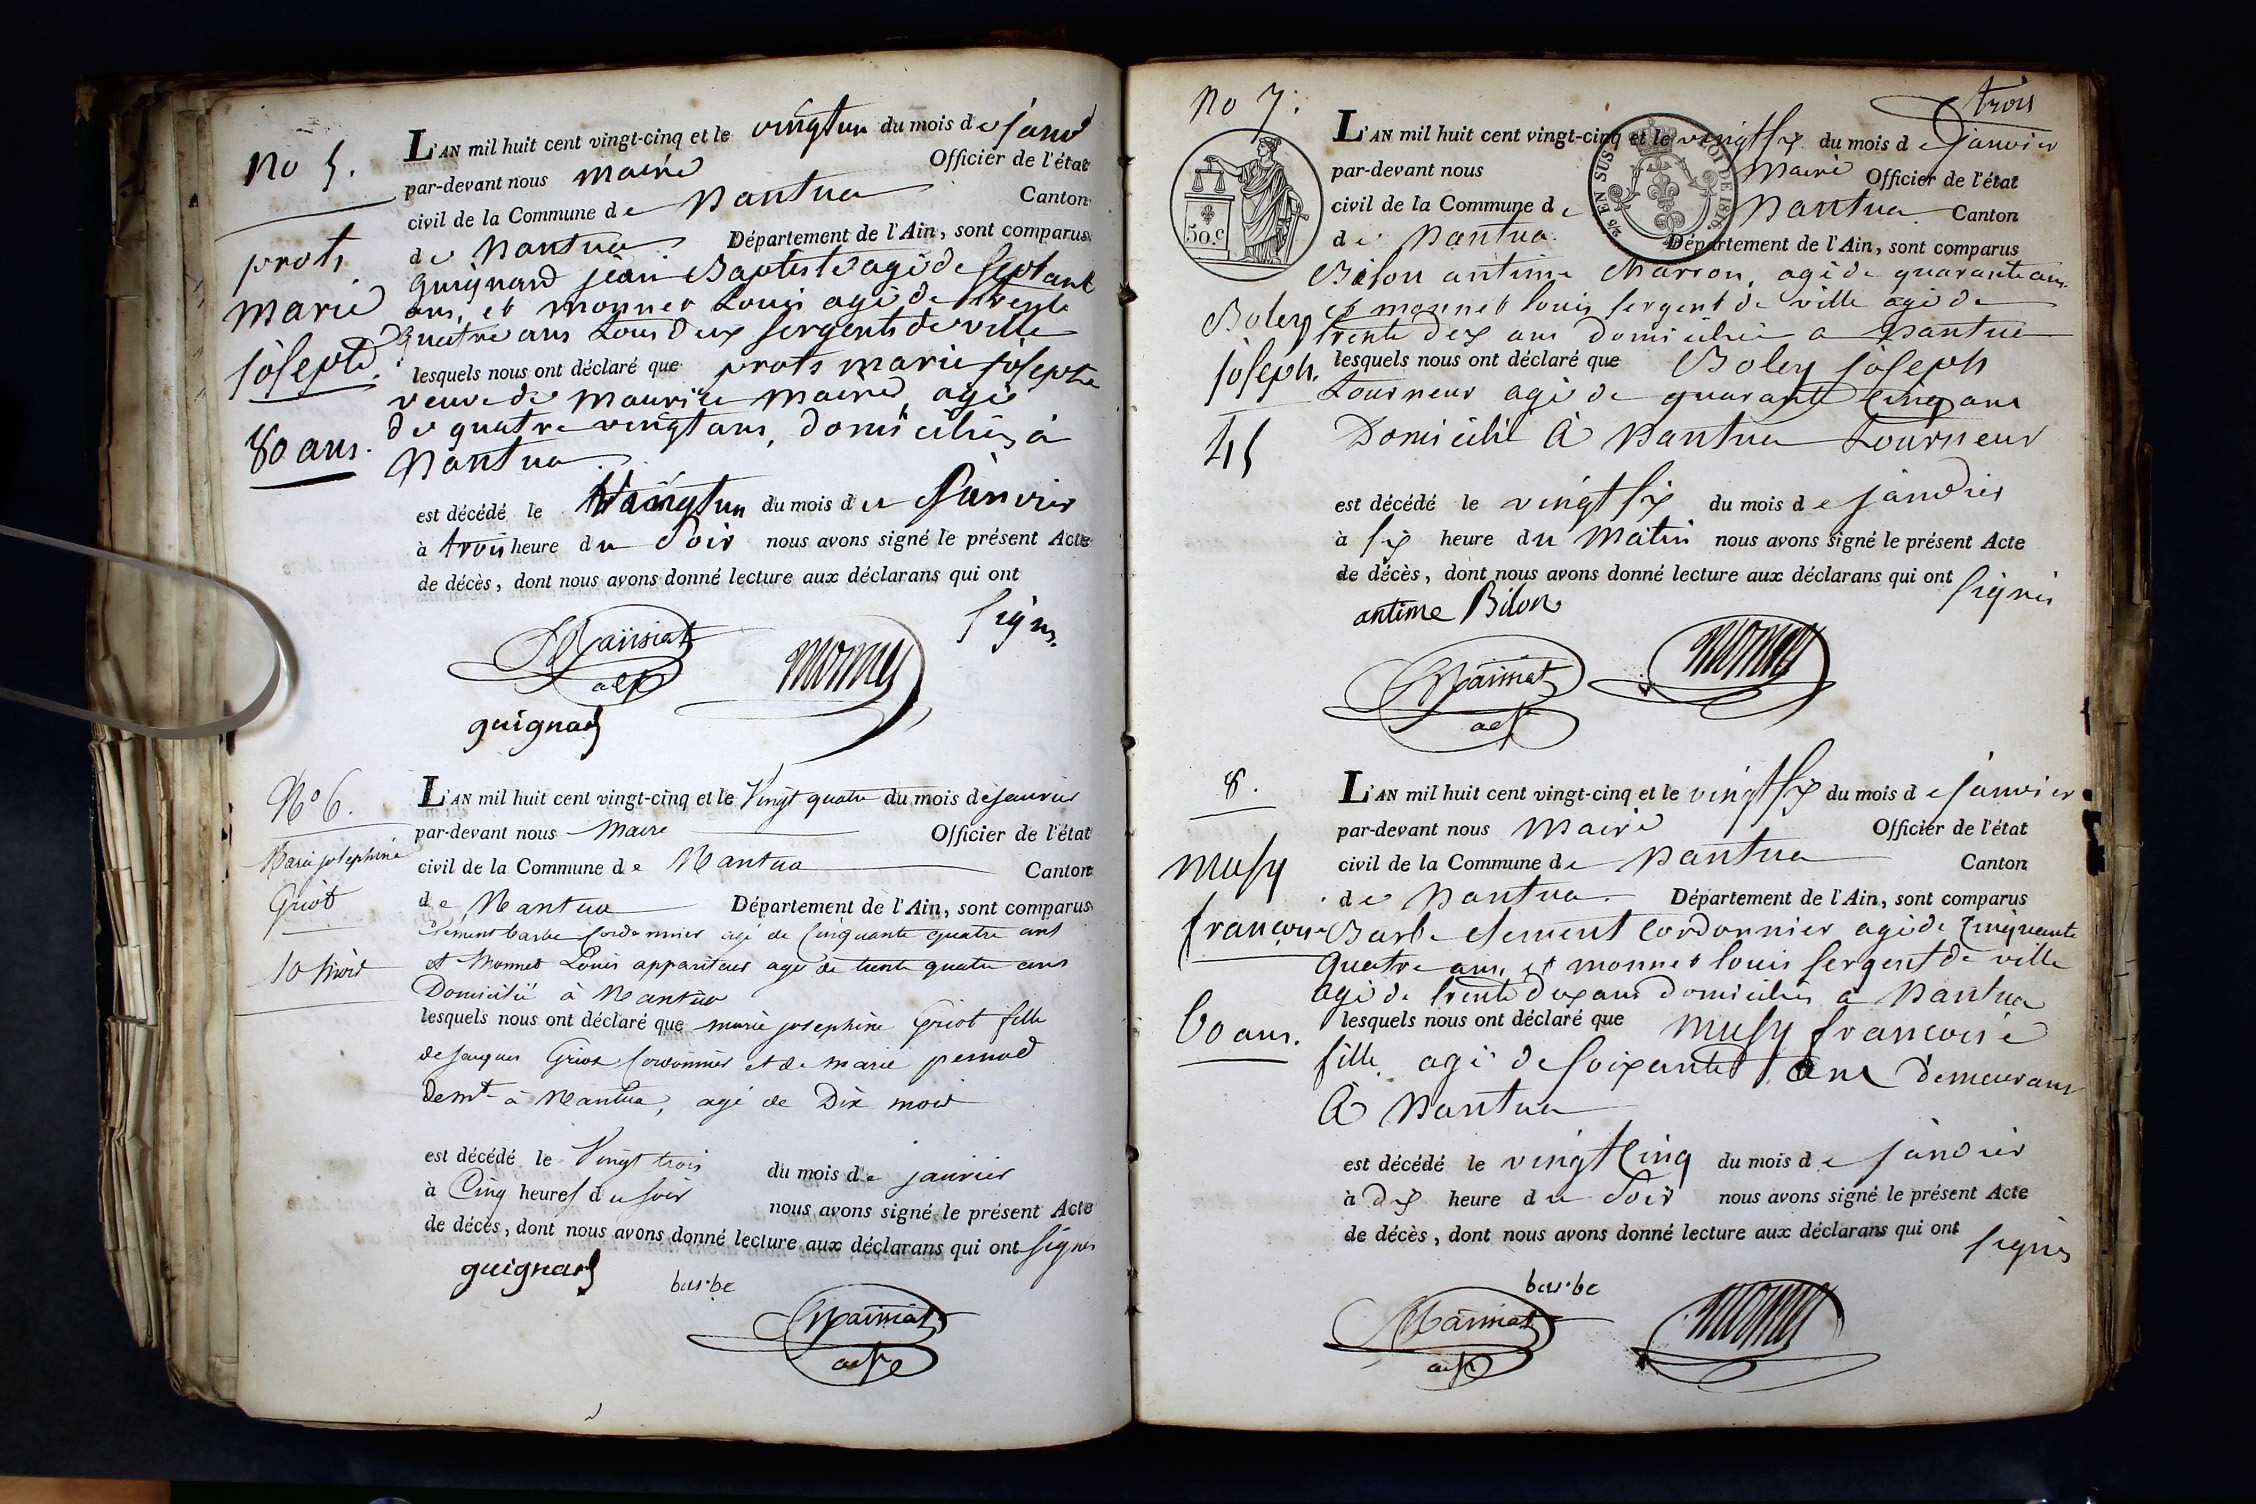 No 5.
prots
marie
josephe
80 ans.
L'AN mil huit cent vingt-cinq et le vingtun du mois de janv
par-devant nous maire Officier de l'état
civil de la Commune de Nantua Canton
de Nantua Département de l'Ain, sont comparus
guignard jean Baptiste agé de septant
ans, et monnet Louis agé de trente
quatre ans tous deux sergents de ville
lesquels nous ont déclaré que prots marie josephe
veuve de maurize maire agé
de quatre vingt ans, domiciliés à
Nantua
est décédé le vingtun du mois de janvier
à trois heure du soir nous avons signé le présent Acte
de décès, dont nous avons donné lecture aux déclarans qui ont
signés.
guignard
No 6.
Marie josephine
Griot
10 mois
L'AN mil huit cent vingt-cinq et le Vingt quatre du mois de janvier
par-devant nous Maire Officier de l'état
civil de la Commune de Nantua Canton
de Nantua Département de l'Ain, sont comparus
Clément barbe Cordonnier agé de Cinquante quatre ans
et Monnet Louis appariteur agé de trente quatre ans
Domicilié à Nantua
lesquels nous ont déclaré que marie josephine Griot fille
de jacques Griot Cordonnier et de marie pernod
demt à Nantua, agé de Dix mois
est décédé le Vingt trois du mois de janvier
à Cinq heures du soir nous avons signé le présent Acte
de décès, dont nous avons donné lecture aux déclarans qui ont signés
guignard
barbe
trois
No 7.
50.c
2/5 EN SUS LOI DE 1816.
Boley
joseph.
45
L'AN mil huit cent vingt-cinq et le vingt six du mois de janvier
par-devant nous Maire Officier de l'état
civil de la Commune de Nantua Canton
de Nantua Département de l'Ain, sont comparus
Bilon antime Marron, agé de quarante ans
et monnet louis sergent de ville agé de
trente dex ans domiciliés a Nantua
lesquels nous ont déclaré que Boley joseph
tourneur agé de quarante Cinq ans
Domicilié à Nantua tourneur
est décédé le vingt six du mois de janvier
à six heure du Matin nous avons signé le présent Acte
de décès, dont nous avons donné lecture aux déclarans qui ont
signés
antime Bilon
8.
musy
françoise
60 ans.
L'AN mil huit cent vingt-cinq et le vingt six du mois de janvier
par-devant nous Maire Officier de l'état
civil de la Commune de Nantua Canton
de Nantua Département de l'Ain, sont comparus
Barbe clement Cordonnier agé de Cinquante
quatre ans, et monnet louis sergent de ville
agé de trente dex ans domiciliés a Nantua
lesquels nous ont déclaré que musy francoise
fille agé de soixante ans demeurant
à Nantua
est décédé le vingt Cinq du mois de janvier
à dex heure du soir nous avons signé le présent Acte
de décès, dont nous avons donné lecture aux déclarans qui ont
signés
barbe